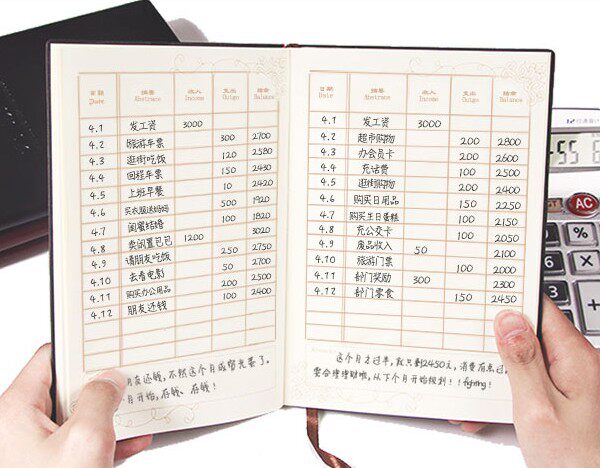 日期 摘要 收入 支出 结余
Date Abstrace Income Outgo Balance
4.1 发工资 3000
4.2 旅游车票 300 2700
4.3 逛街吃饭 120 2580
4.4 回程车票 150 2430
4.5 上班早餐 10 2420
4.6 买衣服送妈妈 500 1920
4.7 闺蜜结婚 100 1820
4.8 卖闲置包包 1200 3020
4.9 请朋友吃饭 250 2750
4.10 去看电影 50 2700
4.11 购买办公用品 200 2500
4.12 朋友还钱 100 2400
朋友还钱，不然这个月底留光要了。
月开始，存钱，存钱！
日期 摘要 收入 支出 结余
Date Abstrace Income Outgo Balance
4.1 发工资 3000
4.2 超市购物 200 2800
4.3 办会员卡 200 2600
4.4 充话费 100 2500
4.5 逛街购物 200 2400
4.6 购买日用品 150 2250
4.7 购买生日蛋糕 100 2150
4.8 充公交卡 100 2050
4.9 废品收入 50 2100
4.10 旅游门票 100 2000
4.11 部门奖励 300 2300
4.12 部门零食 150 2450
这个月才过半，就只剩2450元，消费有点过，
要合理理财啦，从下个月开始规划！！fighting！
AC